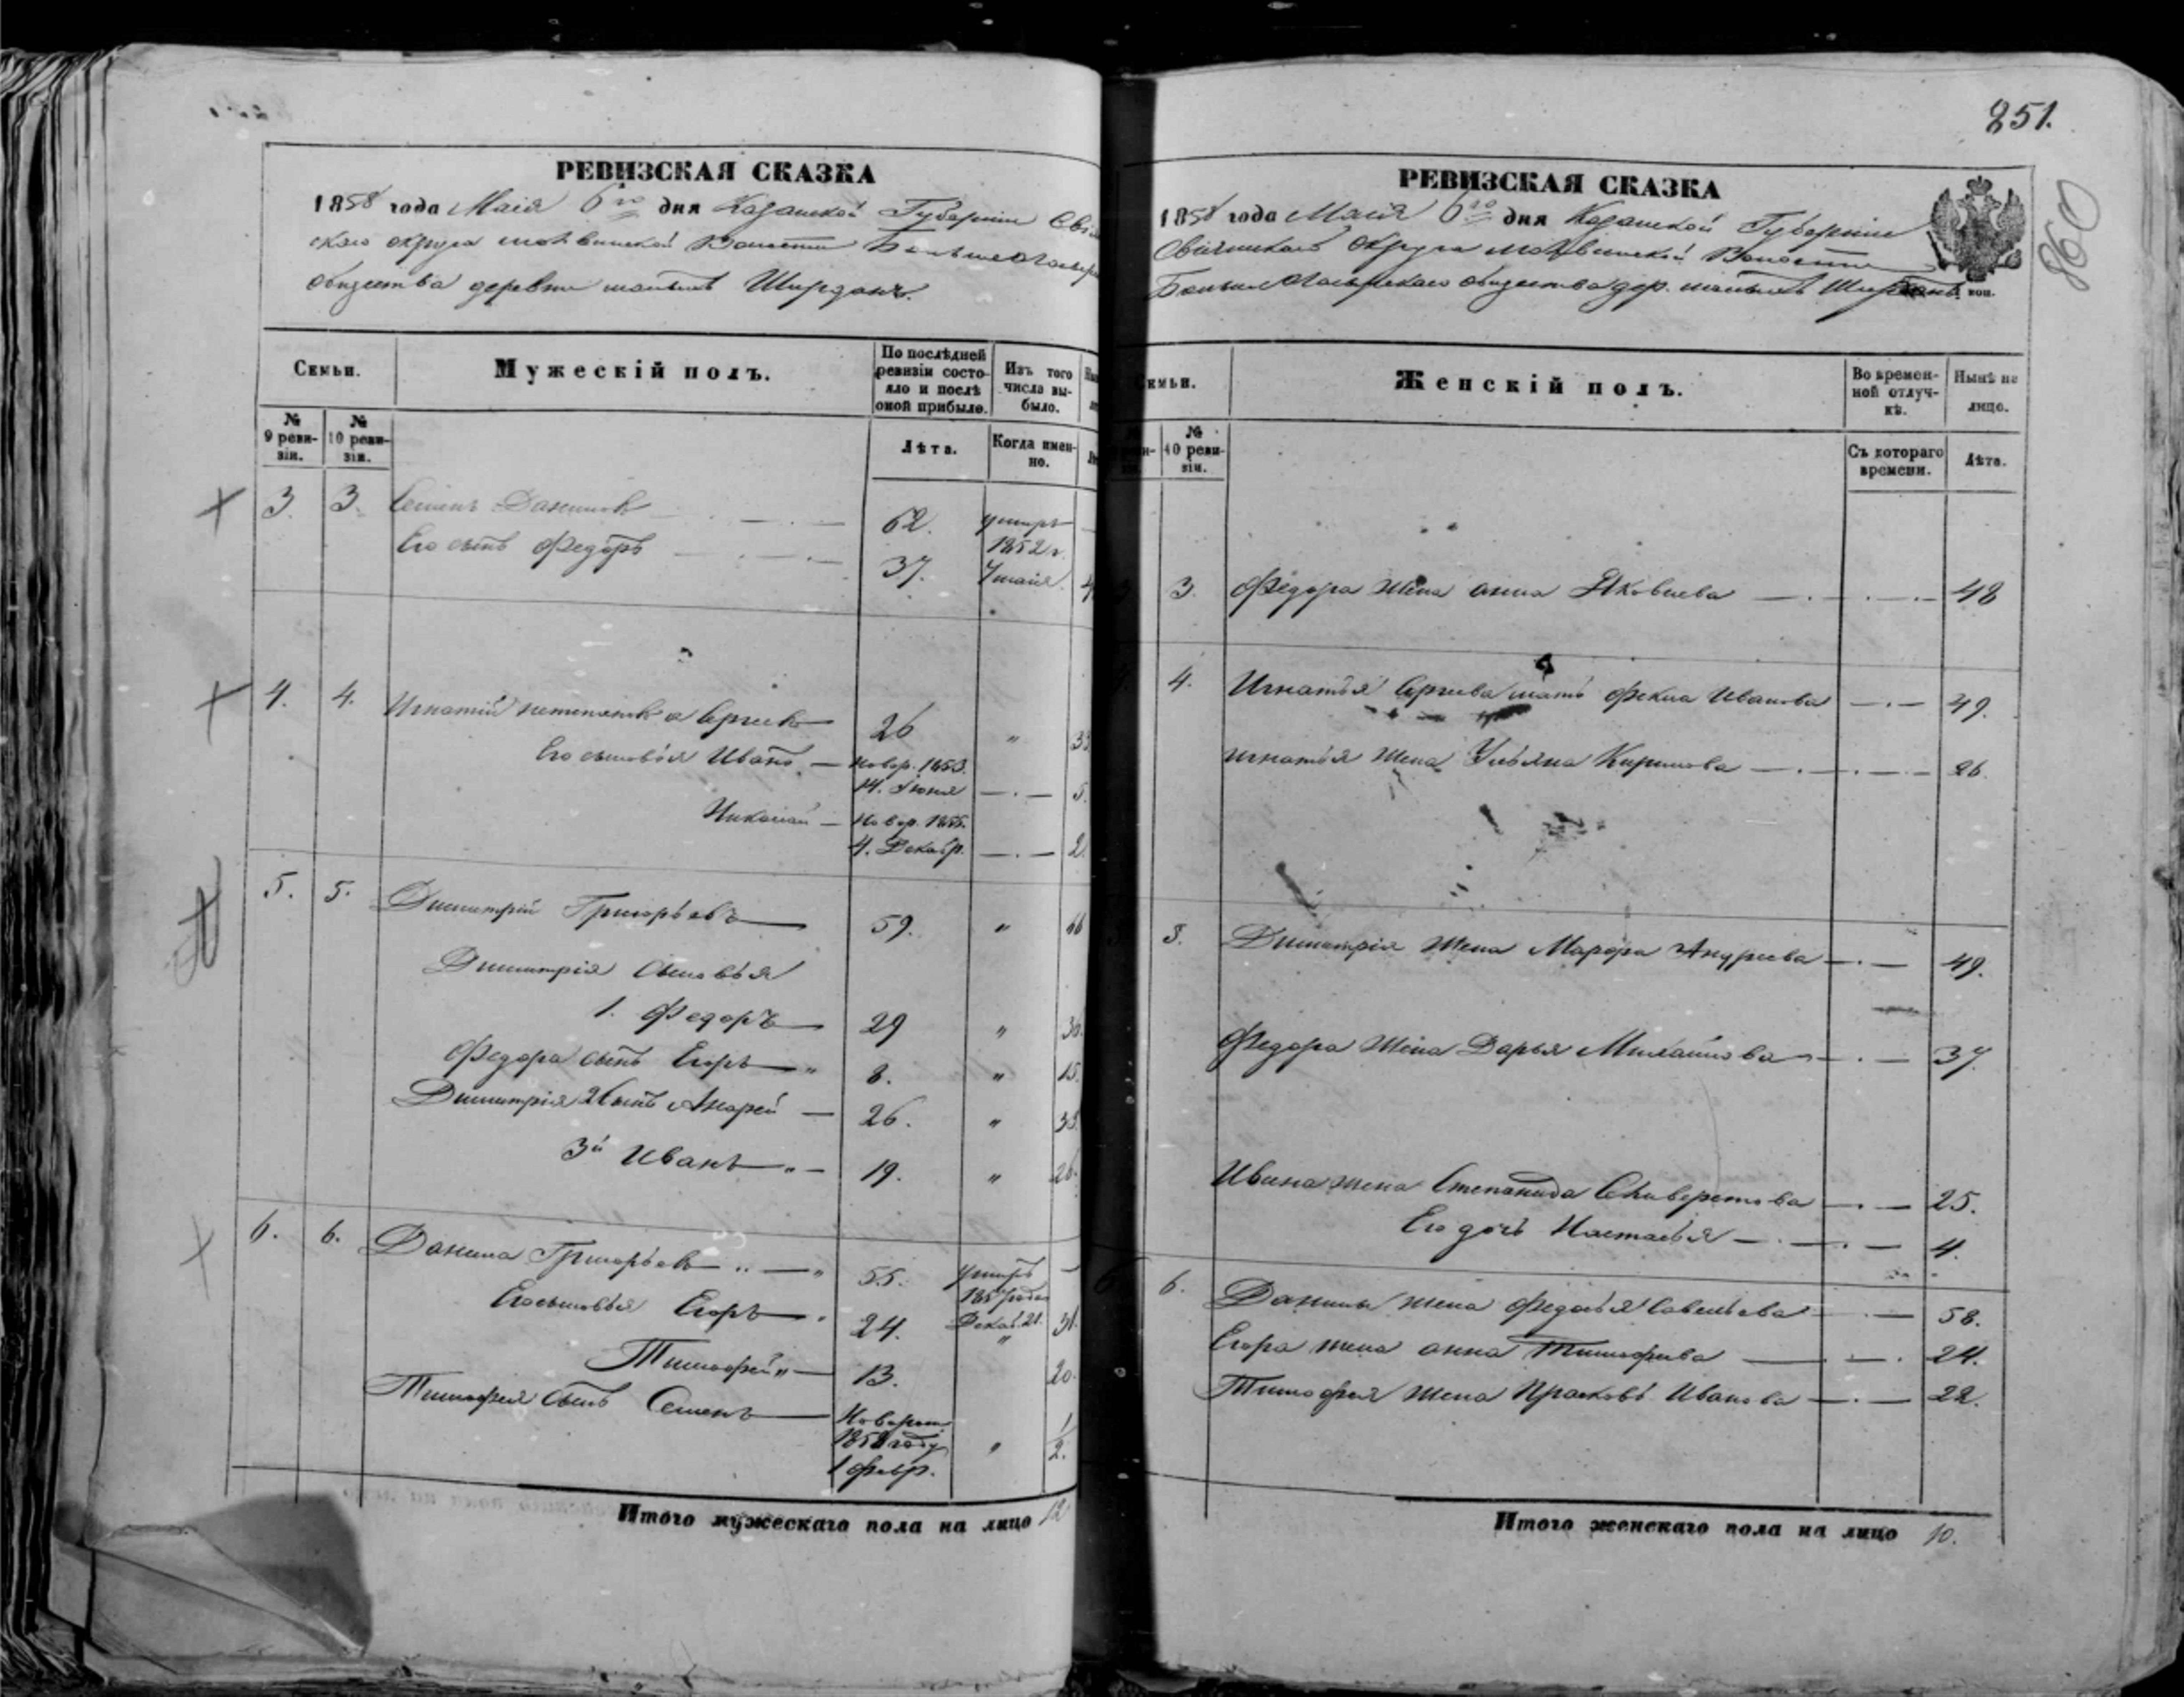 251.
860
РЕВИЗСКАЯ СКАЗКА
1858 года Маія 6го дня Казанской Губерніи Свія
скаго округа Волости
общества деревни малыхъ Ширданъ.
Семьи.
Мужескій полъ.
По послѣдней ревизіи состояло и послѣ оной прибыло.
Изъ того числа выбыло.
№ 9 ревизіи.
№ 10 ревизіи.
Лѣта.
Когда именно.
3. 3. Семенъ Даниловъ 62. умеръ
1852 г.
Его сынъ Федоръ 37. 7 маія.
4. 4. Игнатій Сергѣевъ 26 " 33
Его сыновья Иванъ — Новор. 1853.
14. Іюня — 5.
Николай — Новор. 1855.
4. Декабр. — 2.
5. 5. Димитрій Григорьевъ 59. " 66
Димитрія Сыновья
1. Федоръ 29 " 36.
Федора сынъ Егоръ 8. " 15.
Димитрія 2й сынъ Андрей — 26. " 33.
3й Иванъ 19. " 26.
6. 6. Данила Григорьевъ 55. умеръ —
1857 года
Декаб. 21.
Его сыновья Егоръ 24. " 31.
Тимофей 13. 20.
Тимофея сынъ Семенъ — Новорож.
1858 году " 1/2.
1 февр.
Итого мужескаго пола на лицо 12
РЕВИЗСКАЯ СКАЗКА
1858 года Маія 6го дня Казанской Губерніи
Свіяжскаго Округа Волости
общества дер. малыхъ Ширданъ.
коп.
Женскій полъ.
Во временной отлучкѣ.
Нынѣ на лицо.
№ 10 ревизіи.
Съ котораго времени.
Лѣта.
3. Федора жена анна Яковлева — 48
4. Игнатья Сергѣева мать Фекла Иванова — 49.
игнатья жена Ульяна Кирилова — 26.
5. Димитрія жена Марфа Андреева — 49.
Федора жена Дарья Михайлова — 37.
Ивана жена Степанида — 25.
Его дочь Настасья — 4.
6. Данилы жена Федосья Савельева — 58.
Егора жена анна Тимофеева — 24.
Тимофея жена Прасковья Иванова — 22.
Итого женскаго пола на лицо 10.